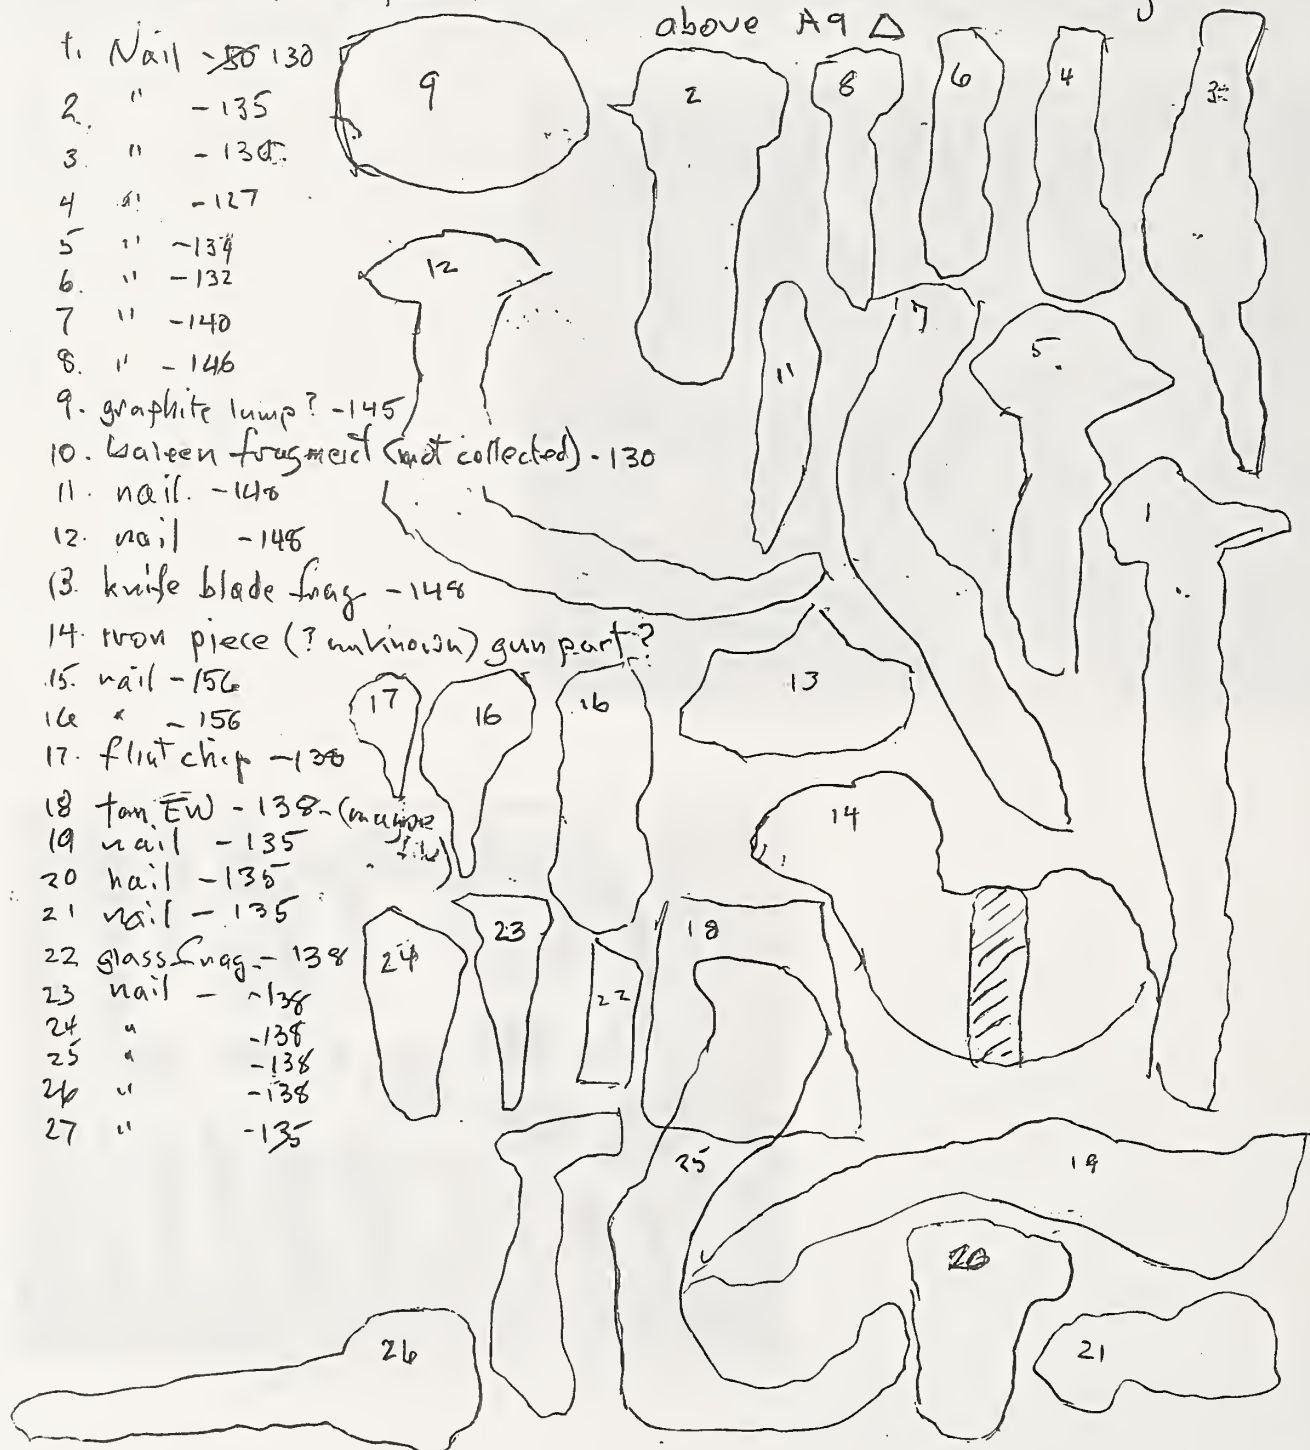 above A9 △
1. Nail - 130
2. " - 135
3. " -
4 " - 127
5 " - 134
6. " - 132
7 " - 140
8. " - 146
9. graphite lump? - 145
10. baleen fragment (not collected) - 130
11. nail. - 148
12. nail - 148
13. knife blade frag - 148
14. iron piece (? unknown) gun part?
15. nail - 156
16 " - 156
17. flint chip - 138
18 tan EW - 138 - (maybe
19 nail - 135
20 nail - 135
21 nail - 135
22 glass frag. - 138
23 nail - 138
24 " - 138
25 " - 138
26 " - 138
27 " - 135
9
2
8
6
4
3
12
11
7
5
1
13
17
16
16
14
24
23
22
18
25
19
20
21
26